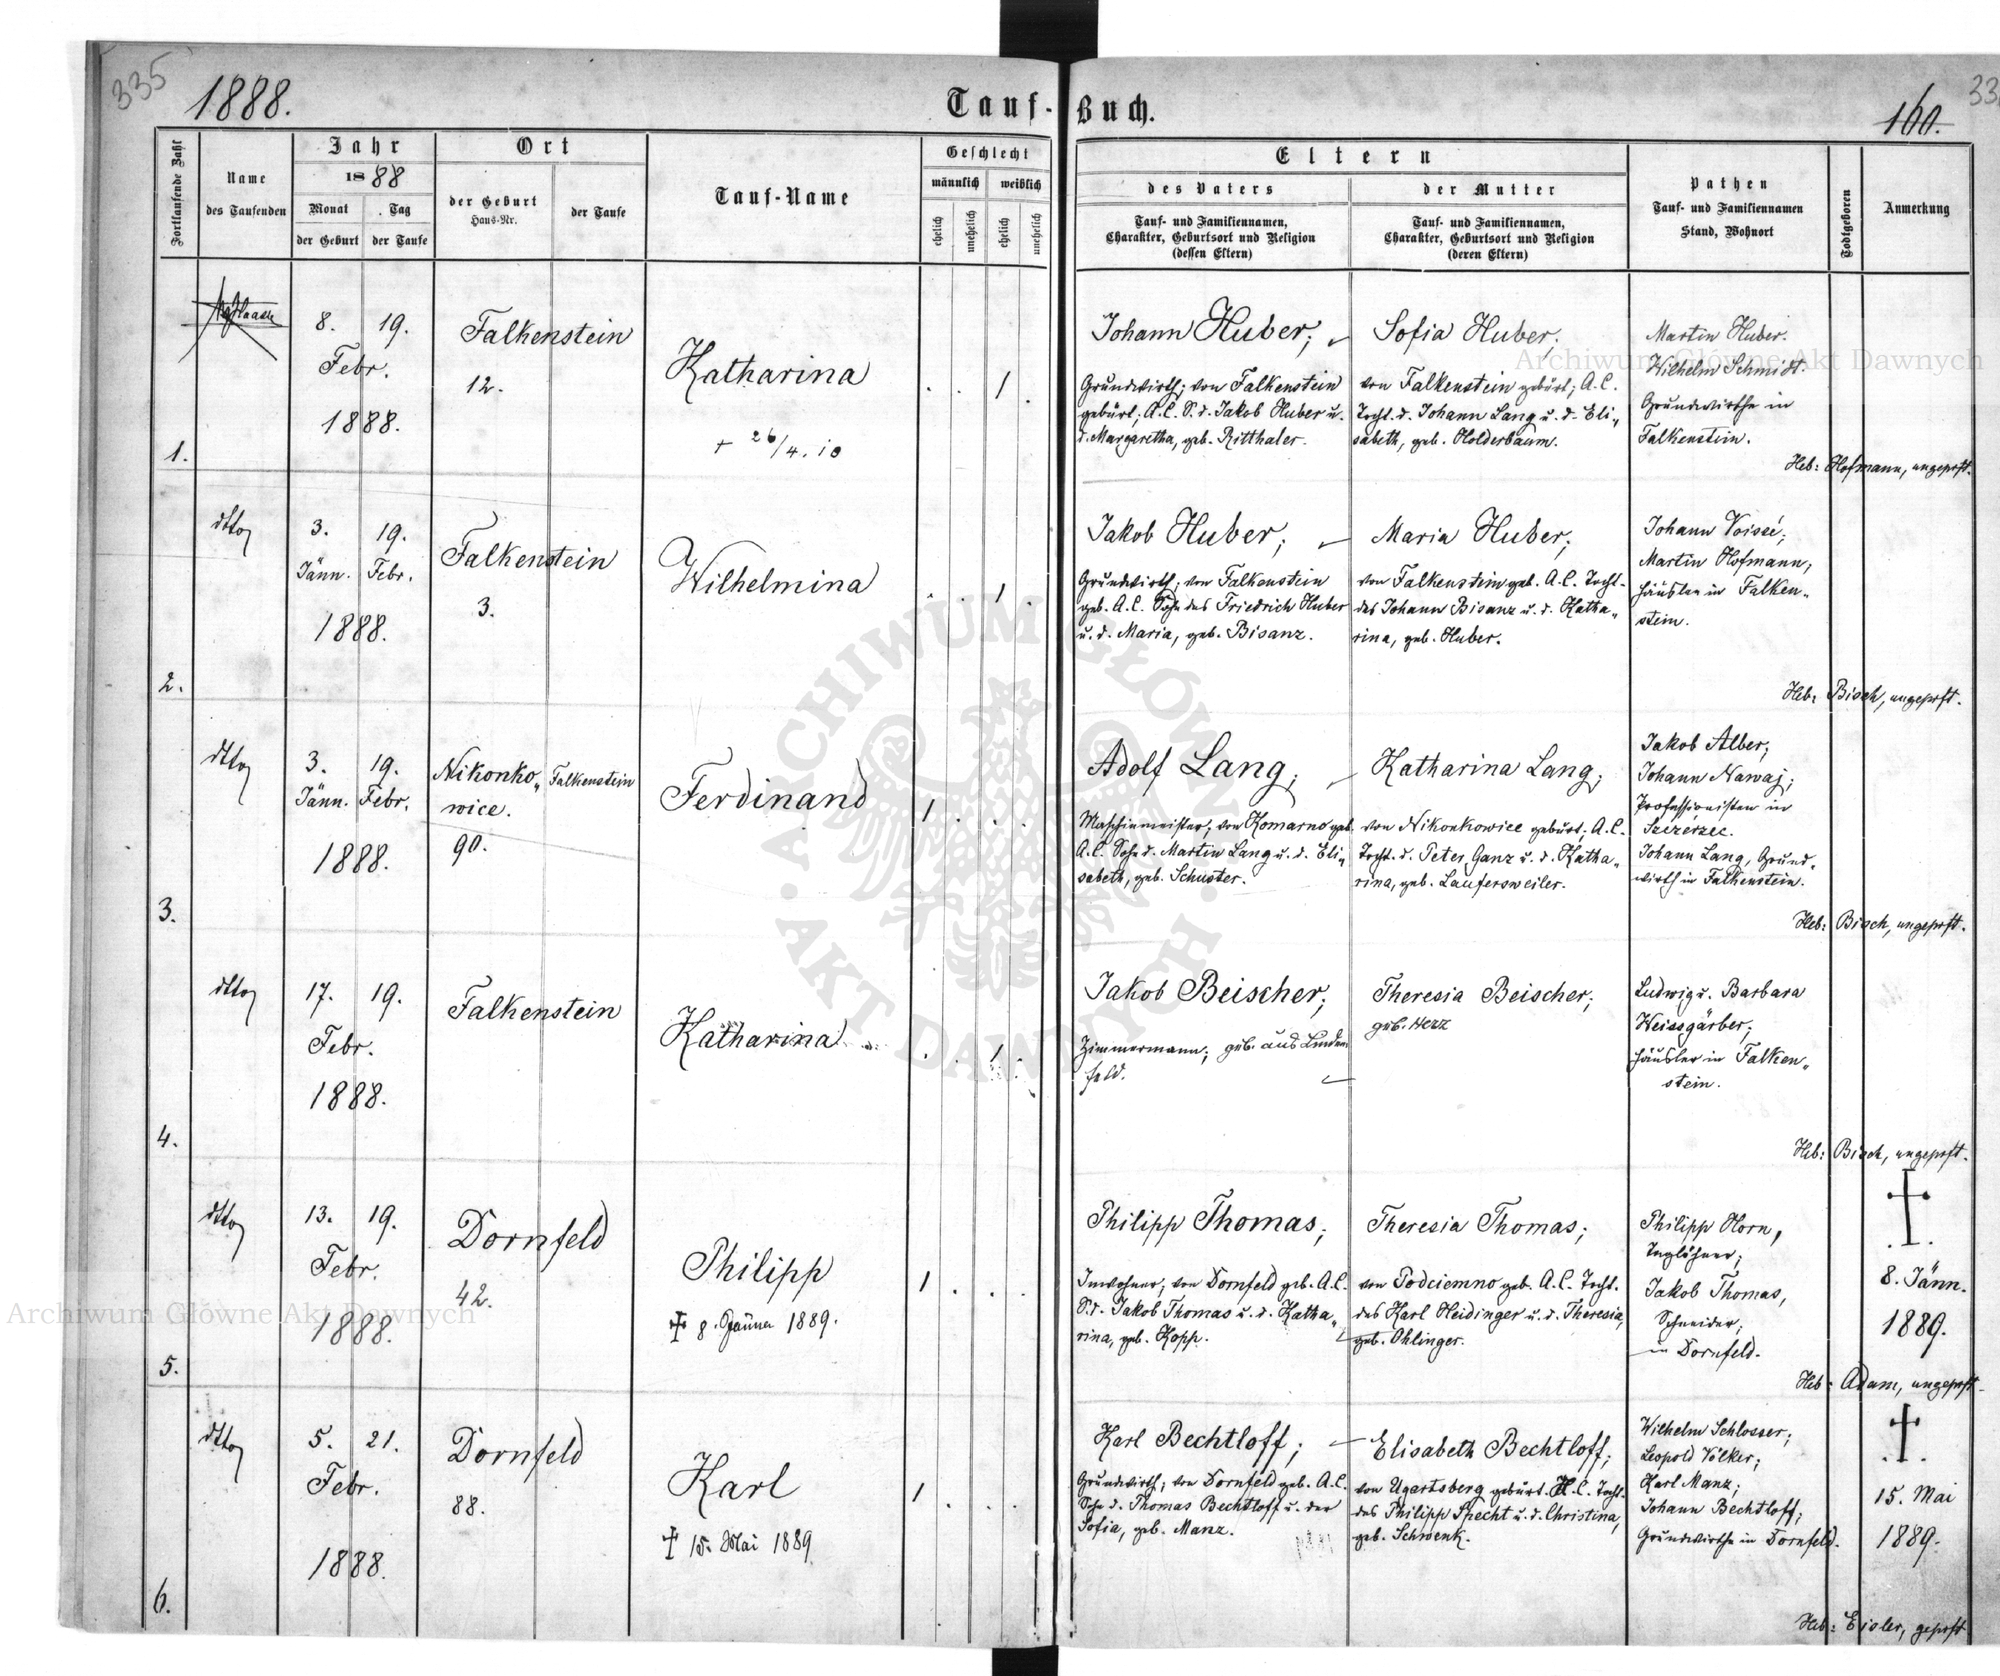 335
1888.
Tauf-Buch.
160.
33
Fortlaufende Zahl
Name
des Taufenden
Jahr
1888
Monat
Tag
der Geburt
der Taufe
Ort
der Geburt
Haus-Nr.
der Taufe
Tauf-Name
Geschlecht
männlich
weiblich
ehelich
unehelich
ehelich
unehelich
Eltern
des Vaters
Tauf- und Familiennamen,
Charakter, Geburtsort und Religion
(dessen Eltern)
der Mutter
Tauf- und Familiennamen,
Charakter, Geburtsort und Religion
(deren Eltern)
Pathen
Tauf- und Familiennamen
Stand, Wohnort
Todtgeboren
Anmerkung
1.
8. 19.
Febr.
1888.
Falkenstein
12.
Katharina
+ 26/4. 10
1
Johann Huber;
Grundwirth; von Falkenstein
gebürt; A.C. S. d. Jakob Huber u.
d. Margaretha, geb. Ritthaler.
Sofia Huber;
von Falkenstein gebürt; A.C.
Tocht. d. Johann Lang u. d. Eli„
sabeth, geb. Holderbaum.
Martin Huber.
Wilhelm Schmidt.
Grundwirthe in
Falkenstein.
Heb: Hofmann, ungeprft.
2.
dtto
3. 19.
Jänn. Febr.
1888.
Falkenstein
3.
Wilhelmina
1
Jakob Huber;
Grundwirth; von Falkenstein
geb. A.C. Sohn des Friedrich Huber
u. d. Maria, geb. Bisanz.
Maria Huber;
von Falkenstein geb. A.C. Tocht.
des Johann Bisanz u. d. Katha„
rina, geb. Huber.
Johann Voissé;
Martin Hofmann;
Häusler in Falken„
stein.
Heb: Bisch, ungeprft.
3.
dtto
3. 19.
Jänn. Febr.
1888.
Nikonko„
wice.
90.
Falkenstein
Ferdinand
1
Adolf Lang;
Maschinmeister; von Komarno geb.
A.C. Sohn d. Martin Lang u. d. Eli„
sabeth, geb. Schuster.
Katharina Lang;
von Nikonkowice gebürt; A.C.
Tocht. d. Peter Ganz u. d. Katha„
rina, geb. Laufersweiler.
Jakob Alber;
Johann Nawaj;
Professionisten in
Szczerzec.
Johann Lang, Grund„
wirth in Falkenstein.
Heb: Bisch, ungeprft.
4.
dtto
17. 19.
Febr.
1888.
Falkenstein
Katharina
1
Jakob Beischer;
Zimmermann; geb. aus Linden
feld.
Theresia Beischer;
geb. Herz
Ludwig u. Barbara
Weissgärber;
Häusler in Falken„
stein.
Heb: Bisch, ungeprft.
5.
dtto
13. 19.
Febr.
1888.
Dornfeld
42.
Philipp
‡ 8. Jänner 1889.
1
Philipp Thomas;
Inwohner; von Dornfeld geb. A.C.
S. d. Jakob Thomas u. d. Katha„
rina, geb. Kopp.
Theresia Thomas;
von Podciemno geb. A.C. Tocht.
des Karl Heidinger u. d. Theresia,
geb. Ohlinger.
Philipp Horn,
Taglöhner;
Jakob Thomas,
Schneider;
in Dornfeld.
8. Jänn.
1889.
Heb: Adam, ungeprft.
6.
dtto
5. 21.
Febr.
1888.
Dornfeld
88.
Karl
‡ 15. Mai 1889
1
Karl Bechtloff;
Grundwirth; von Dornfeld geb. A.C.
Sohn d. Thomas Bechtloff u. der
Sofia, geb. Manz.
Elisabeth Bechtloff;
von Ugartsberg gebürt. H.C. Tocht.
des Philipp Specht u. d. Christina,
geb. Schwenk.
Wilhelm Schlosser;
Leopold Völker;
Karl Manz;
Johann Bechtloff;
Grundwirthe in Dornfeld.
15. Mai
1889.
Heb: Eisler, geprft
Archiwum Główne Akt Dawnych
Archiwum Główne Akt Dawnych
ARCHIWUM GŁÓWNE AKT DAWNYCH